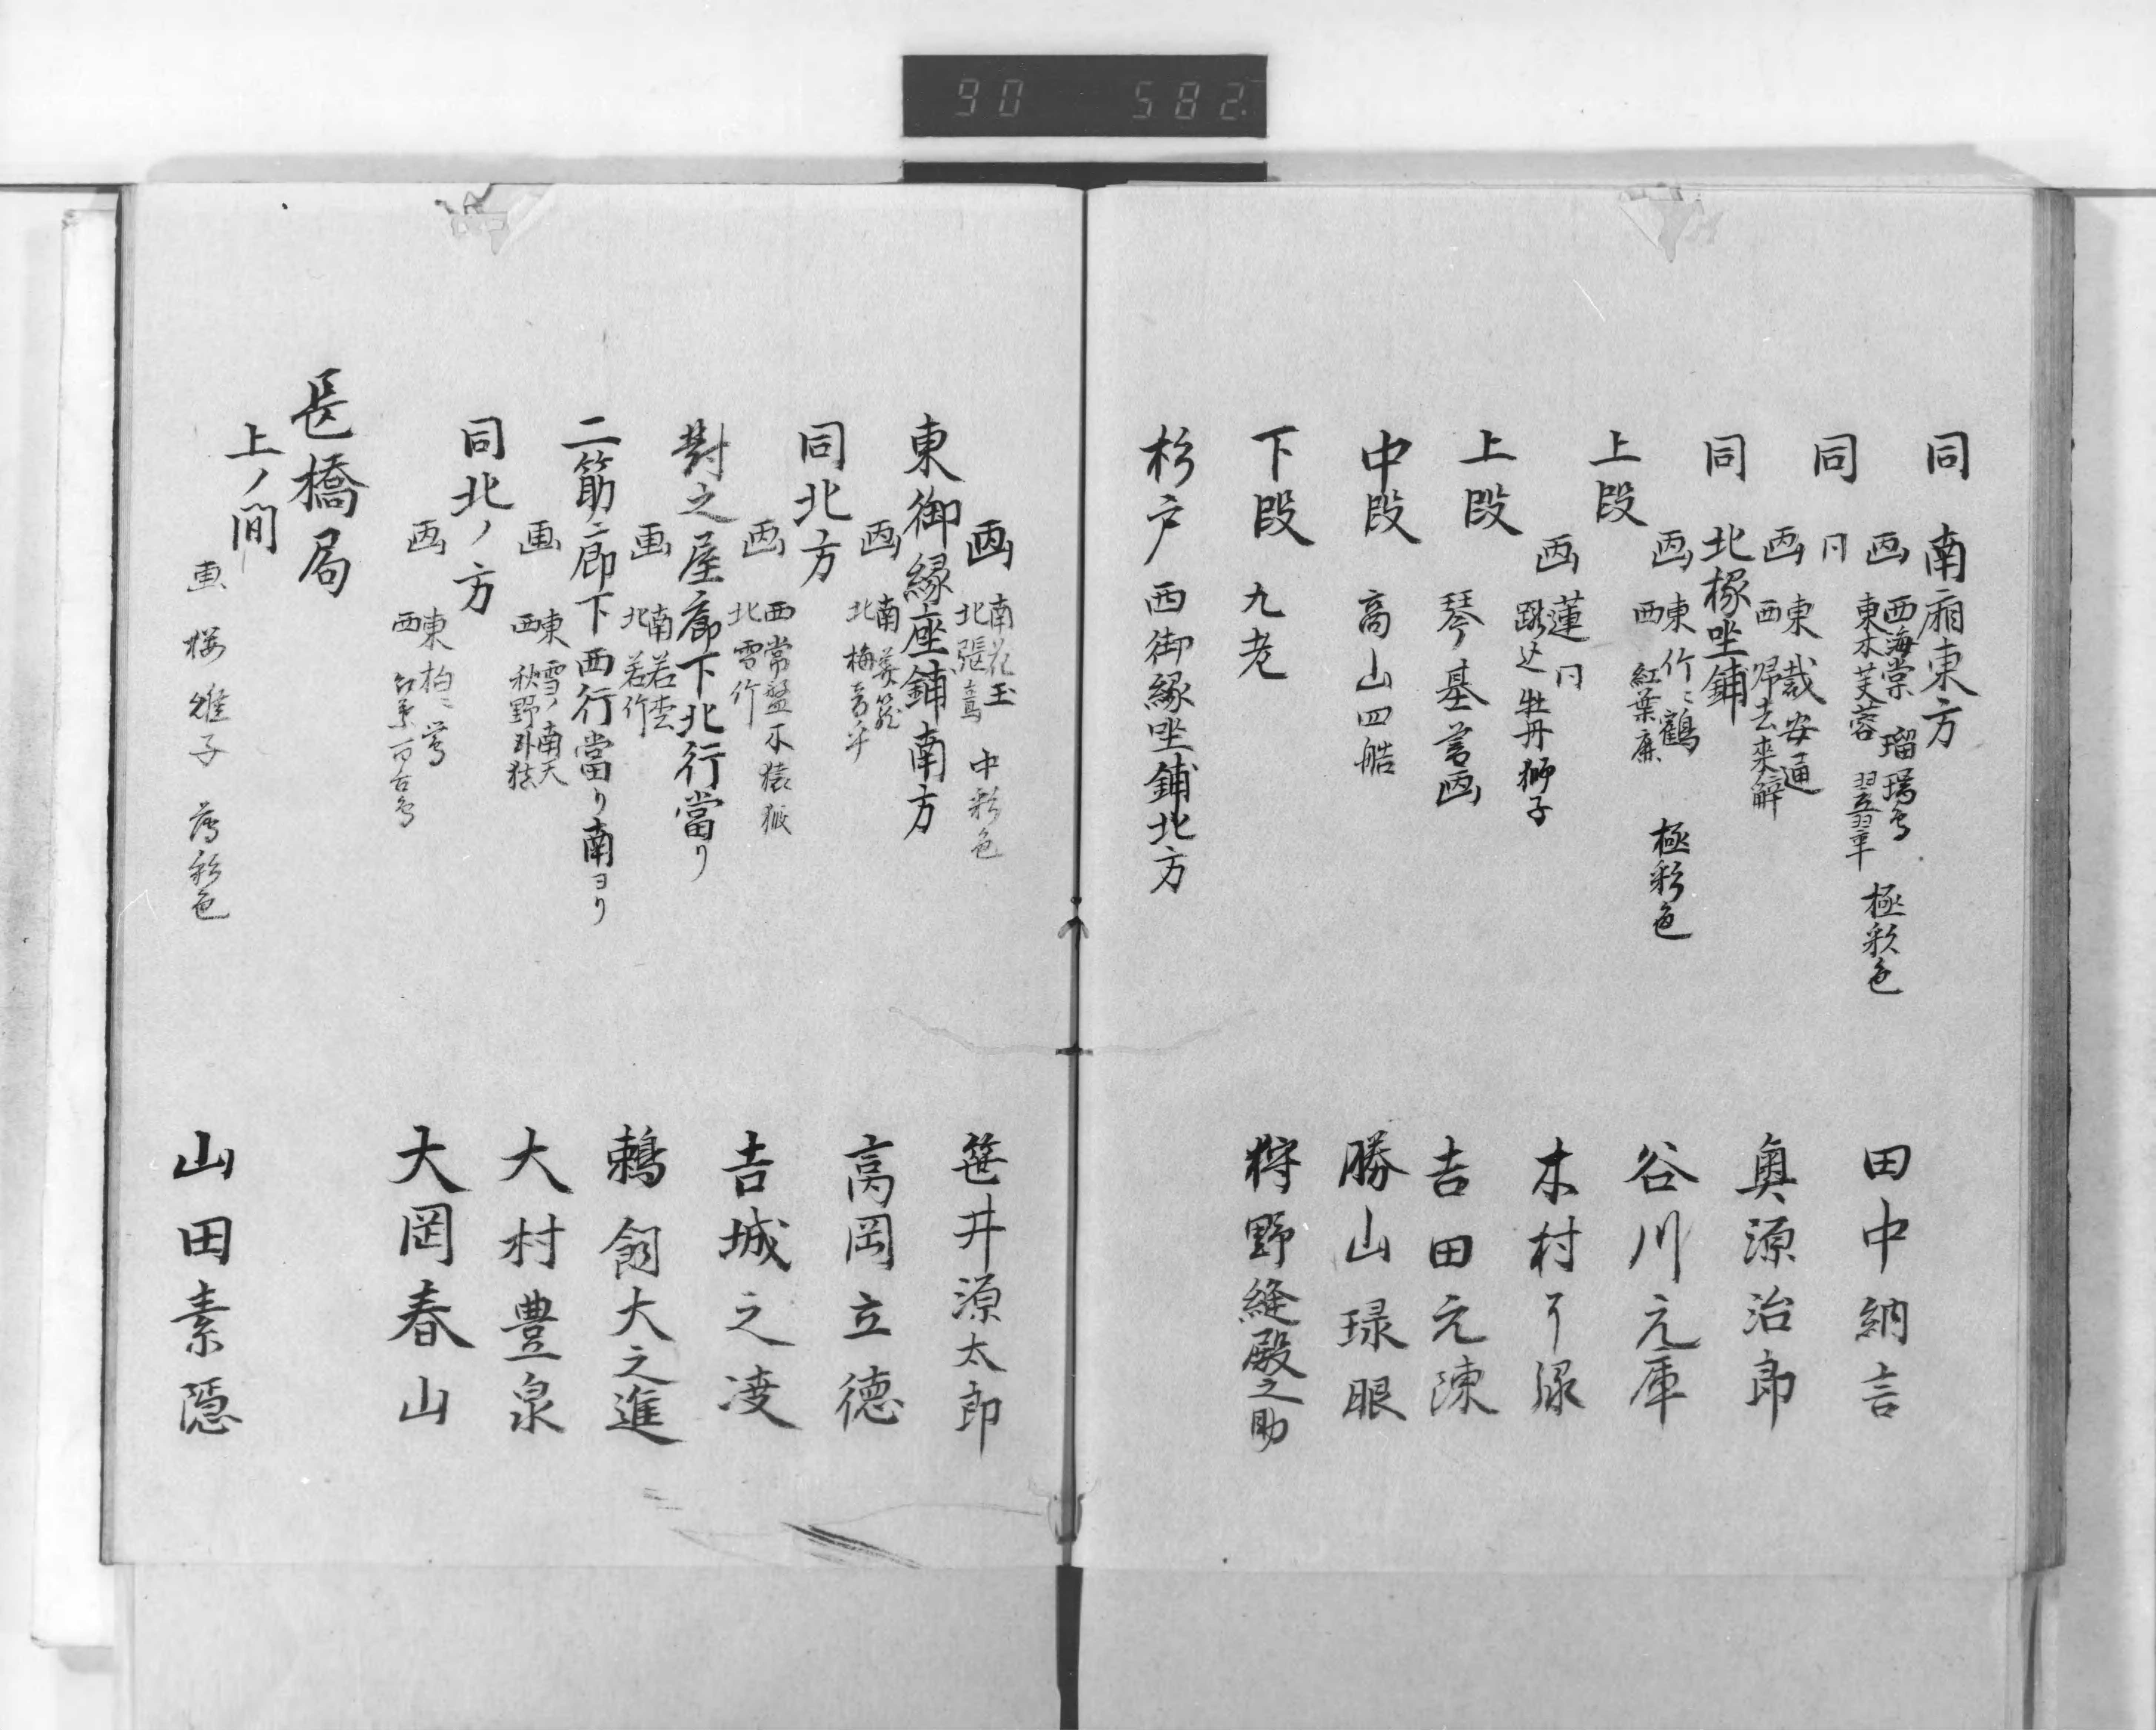 90 582
同 南廂東方
画 西海棠 瑠璃鳥
東木芙蓉 翡翠 極彩色
田中納言
同 同
画 東戴安道
西帰去来辞
奥源治郎
同 北椽坐鋪
画 東竹ニ鶴
西紅葉鹿 極彩色
谷川元庫
上段
画 蓮同
牡丹獅子
木村了琢
上段 琴基書画
吉田元陳
中段 商山四皓
勝山琢眼
下段 九老
狩野縫殿之助
杉戸 西御縁坐鋪北方
画 南花玉
北 中彩色
笹井源太郎
東御縁座鋪南方
画 南
北梅
高岡立徳
同北方
画 西常盤木猿猴
北雪竹
吉城之凌
對之屋廊下北行當り
画 南若松
北若竹
鶴飼大之進
二節ニ郎下西行當り南ヨリ
画 東雪ノ南天
西秋野
大村豊泉
同北ノ方
画 東柏ニ
西
大岡春山
長橋局
上ノ間
画 桜雉子 薄彩色
山田素隠